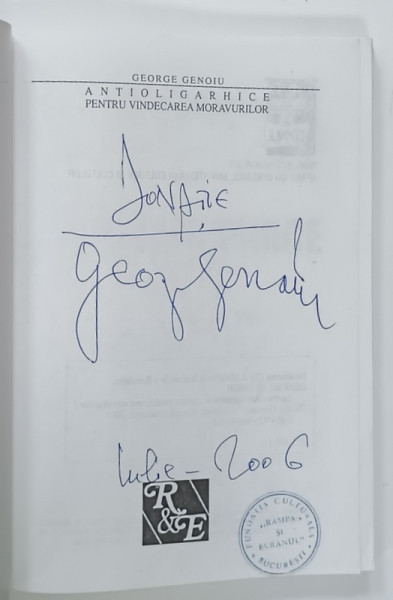 GEORGE GENOIU
ANTIOLIGARHICE
PENTRU VINDECAREA MORAVURILOR
Donație
George Genoiu
Iulie - 2006
R
&
E
FUNDAȚIA CULTURALĂ
"RAMPA
ȘI
ECRANUL"
BUCUREȘTI